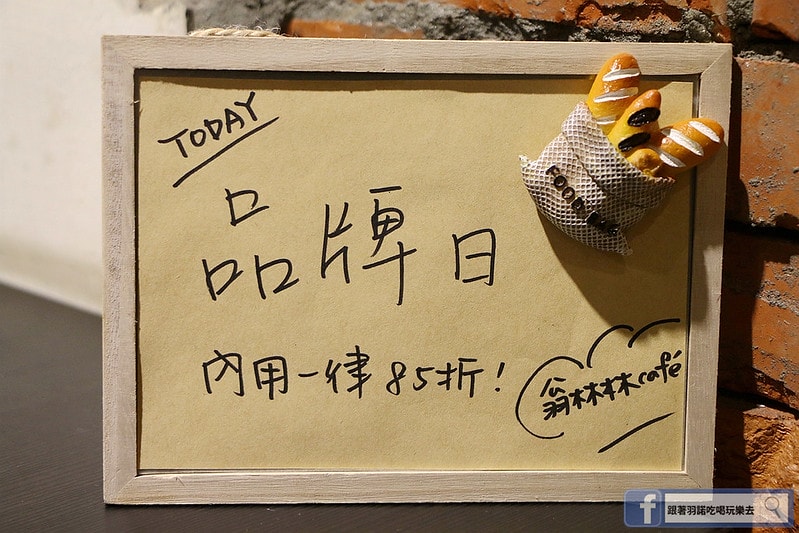 TODAY
品牌日
內用一律85折！
翁林林café
FOOD
跟著羽諾吃喝玩樂去